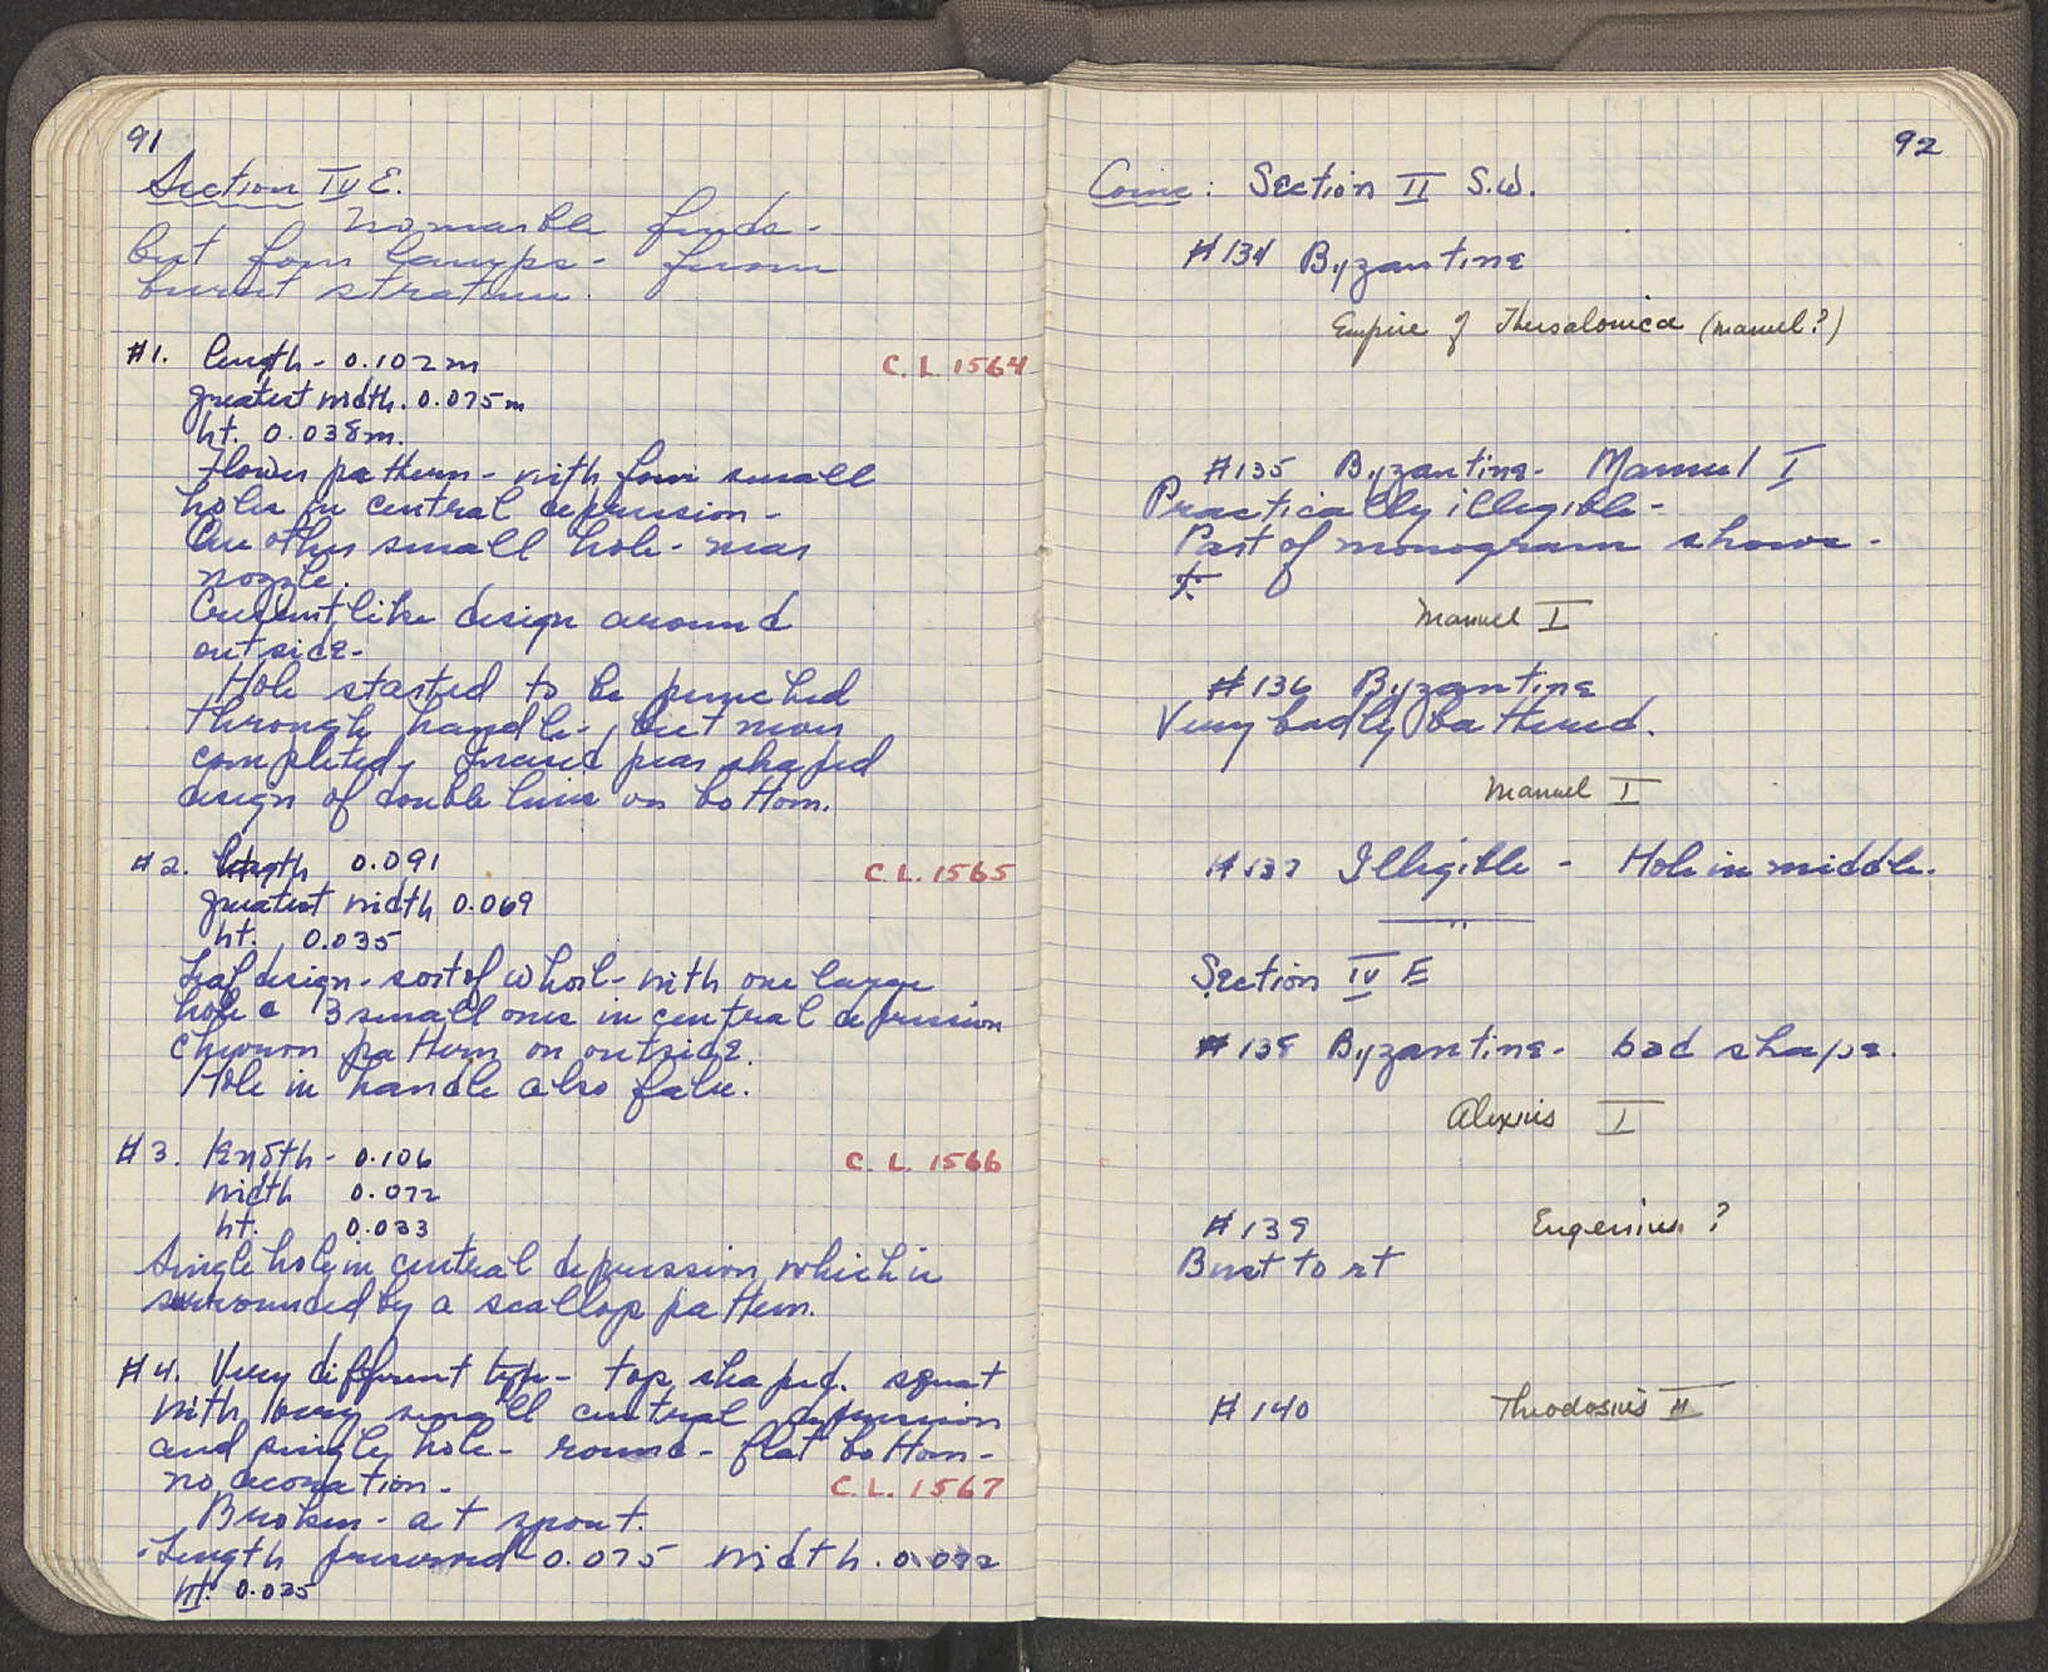 91
Section IV E.
No marble finds -
but four lamps - from
burnt stratum.
#1. length - 0.102 m
C. L. 1564
greatest width. 0.075 m
ht. 0.038 m.
Flower pattern - with four small
holes in central depression -
Another small hole - near
nozzle.
Crescent like design around
outside -
Hole started to be punched
through handle -, but never
completed, Incised pear shaped
design of double lines on bottom.
#2. length 0.091
C. L. 1565
greatest width 0.069
ht. 0.035
Leaf design - sort of whorl - with one large
hole & 3 small ones in central depression
Chevron pattern on outside.
Hole in handle also false.
#3. length - 0.106
C. L. 1566
width 0.072
ht. 0.033
Single hole in central depression which is
surrounded by a scallop pattern.
#4. Very different type - top shaped. squat
with very small central depression
and single hole - round - flat bottom -
no decoration -
C. L. 1567
Broken - at spout.
Length preserved 0.075 width. 0.072
ht. 0.035
92
Coins: Section II S.W.
#134 Byzantine
Empire of Thessalonica (Manuel?)
#135 Byzantine - Manuel I
Practically illegible -
Part of monogram shows -
Manuel I
#136 Byzantine
Very badly battered.
Manuel I
#137 Illegible - Hole in middle.
Section IV E
#138 Byzantine - bad shape.
Alexius I
#139 Eugenius ?
Bust to rt
#140 Theodosius II